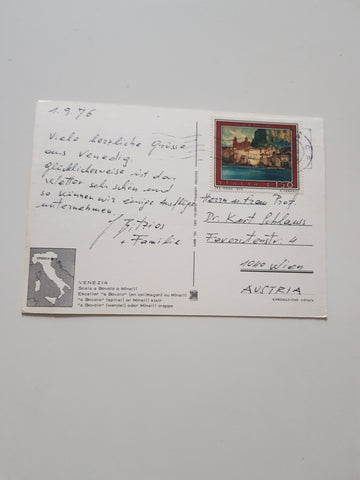 1.9.76
Viele herzliche Grüsse
aus Venedig.
glücklicherweise ist das
Wetter sehr schön und
so können wir einige Ausflüge
unternehmen
+ Familie
L.150
Herrn u. Frau Prof.
Dr. Kurt
4
1040 Wien
AUSTRIA
VENEZIA
Scala a Bovolo o Minelli
Escalier "a Bovolo" (en colimaçon) ou Minelli
"a Bovolo" (spiral) or Minelli stair
"a Bovolo" (wendel) oder Minelli treppe